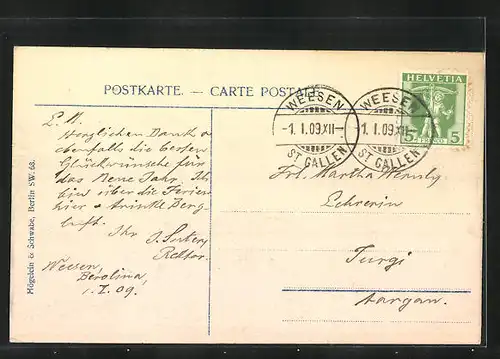 POSTKARTE. — CARTE POSTALE
HELVETIA
5 5
FRANCO
WEESEN
-1. I. 09. XII-
ST GALLEN
WEESEN
-1. I. 09. XII-
ST GALLEN
L. M.
Herzlichen Dank &
ebenfalls die besten
Glückwünsche für
das Neue Jahr. Ich
bin über die Ferien
hier & trinke Berg-
luft.
Ihr
Rektor.
Weesen,
1. I. 09.
Frl. Martha
Lehrerin
Turgi
Aargau.
Mügelein & Schwabe, Berlin SW. 68.